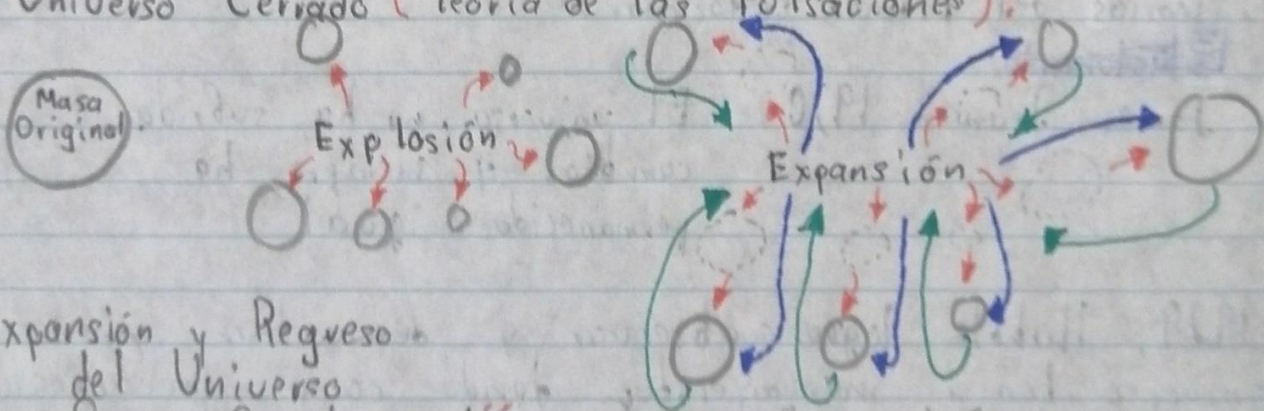 Universo Cerrado (Teoría de las Pulsaciones).
Masa
Original.
Explosión
Expansión
xpansión y Regreso
del Universo